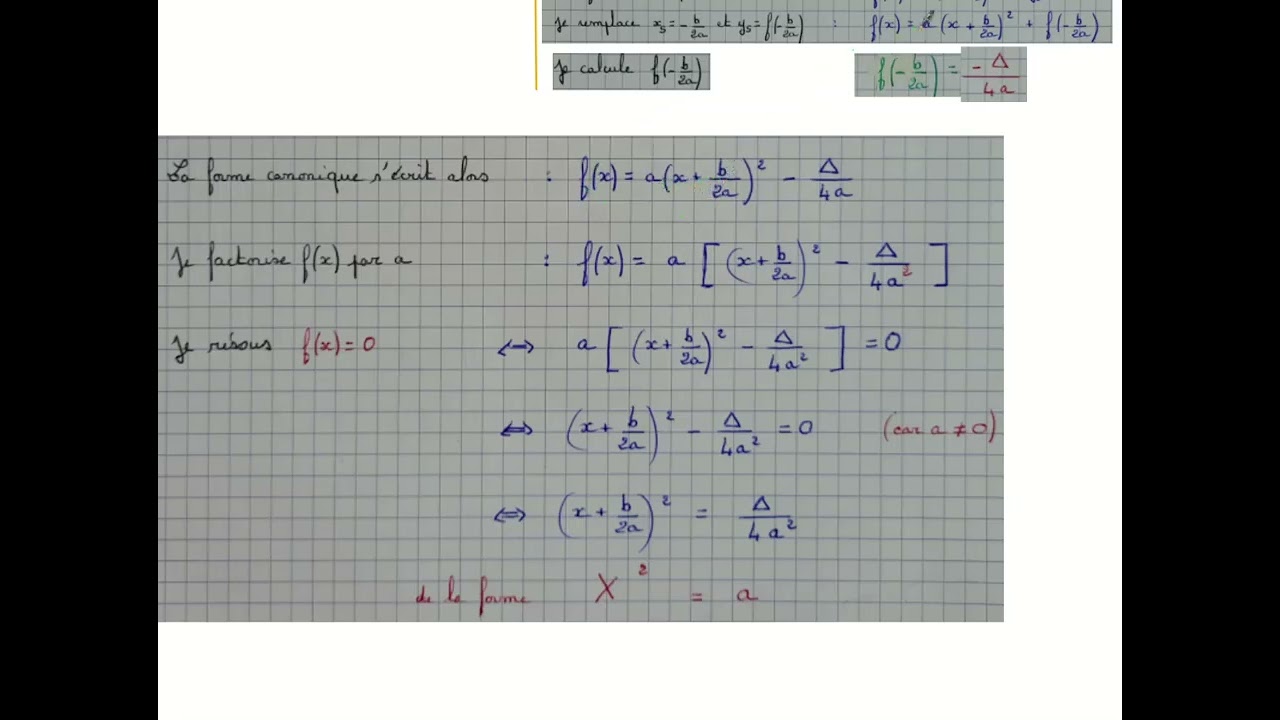 Je remplace x_s = -b/2a et y_s = f(-b/2a) : f(x) = a(x + b/2a)² + f(-b/2a)
Je calcule f(-b/2a) f(-b/2a) = -Δ/4a
La forme canonique s'écrit alors : f(x) = a(x + b/2a)² - Δ/4a
Je factorise f(x) par a : f(x) = a [(x + b/2a)² - Δ/4a²]
Je résous f(x) = 0 ⇔ a [(x + b/2a)² - Δ/4a²] = 0
⇔ (x + b/2a)² - Δ/4a² = 0 (car a ≠ 0)
⇔ (x + b/2a)² = Δ/4a²
de la forme X² = a